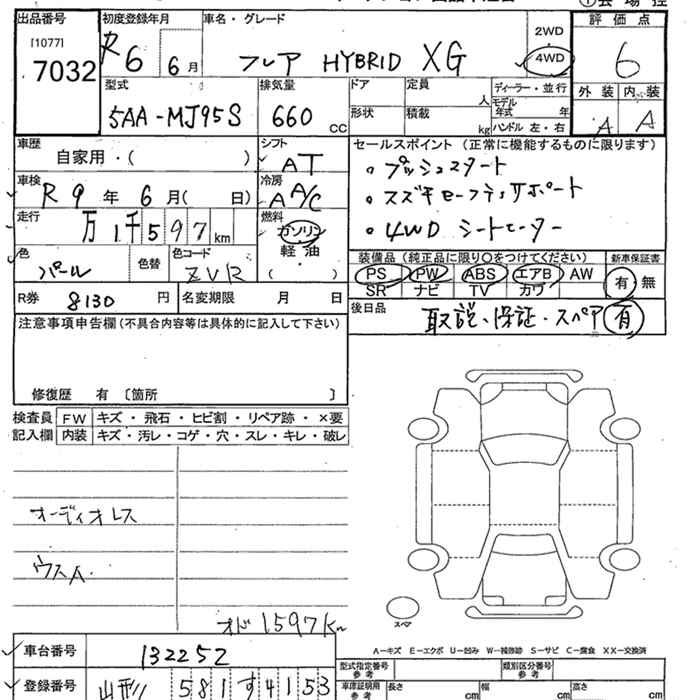 出品番号 初度登録年月 車名・グレード 2WD 評価点
[1077] 7032 R6 6月 フレア HYBRID XG 4WD 6
型式 排気量 ドア 定員 人 ディーラー・並行 外装 内装
5AA-MJ95S 660 CC 形状 積載 kg モデル年式 年 ハンドル 左・右 A A
車歴 シフト セールスポイント (正常に機能するものに限ります)
自家用・( ) AT 。プッシュスタート
車検 冷房 。スズキセーフティサポート
R 9 年 6 月( 日) A A/C 。4WD シートヒーター
走行 燃料
万 1千597 km ガソリン
軽油
( )
色 色替 色コード 装備品 (純正品に限り○をつけてください) 新車保証書
パール ZVR PS PW ABS エアB AW 有・無
SR ナビ TV カワ
R券 8130 円 名変期限 月 日 後日品
取説、保証・スペア 有
注意事項申告欄(不具合内容等は具体的に記入して下さい)
修復歴 有 〔箇所 〕
検査員 FW キズ・飛石・ヒビ割・リペア跡・×要
記入欄 内装 キズ・汚レ・コゲ・穴・スレ・キレ・破レ
オーディオレス
ウスA.
オド 1597Km
スペア
A-キズ E-エクボ U-凹み W-補修跡 S-サビ C-腐食 XX-交換済
車台番号 132252
型式指定番号 参考 類別区分番号 参考
登録番号 山形 581 す 4153
車庫証明用 参考 長さ cm 幅 cm 高さ cm